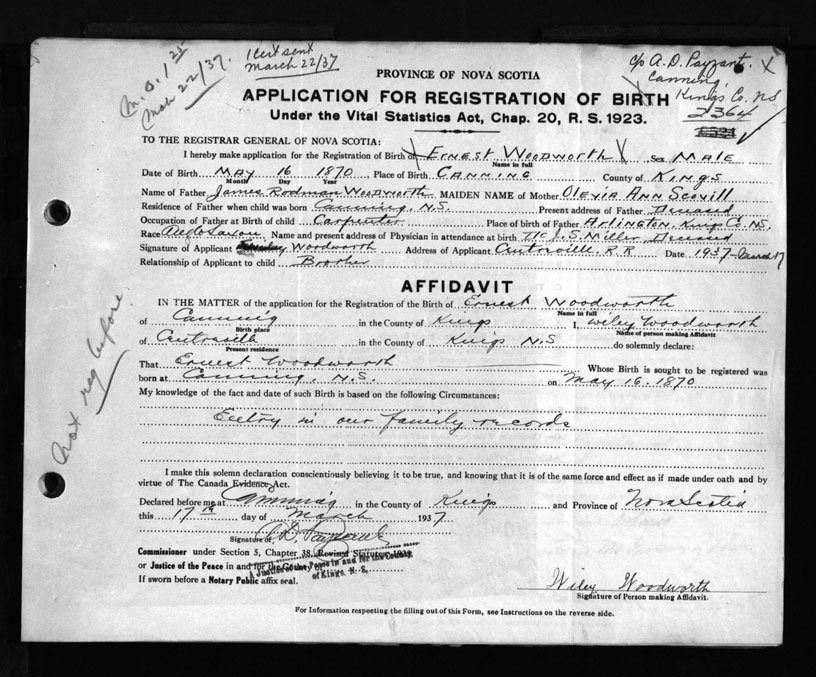 M.O. 1 25
Mch 22/37.
1 cert sent
March 22/37
c/o A. D. Payzant. X
Canning,
Kings Co. NS
2364
PROVINCE OF NOVA SCOTIA
APPLICATION FOR REGISTRATION OF BIRTH
Under the Vital Statistics Act, Chap. 20, R. S. 1923.
TO THE REGISTRAR GENERAL OF NOVA SCOTIA:
I hereby make application for the Registration of Birth of Ernest Woodworth Sex Male
Name in full
Date of Birth May 16 1870 Place of Birth Canning County of Kings
Month Day Year
Name of Father James Rodman Woodworth MAIDEN NAME of Mother Olevia Ann Scovill
Residence of Father when child was born Canning, N.S. Present address of Father Deceased
Occupation of Father at Birth of child Carpenter Place of birth of Father Arlington, Kings Co. N.S.
Race Name and present address of Physician in attendance at birth Dr. J. S. Miller Deceased
Signature of Applicant Woodworth Address of Applicant Centreville, R R Date 1937-March 17
Relationship of Applicant to child Brother
AFFIDAVIT
IN THE MATTER of the application for the Registration of the Birth of Ernest Woodworth
Name in full
of Canning in the County of Kings I, Wiley Woodworth
Birth place Name of person making Affidavit
of Centreville in the County of Kings N.S do solemnly declare:
Present residence
That Ernest Woodworth Whose Birth is sought to be registered was
born at Canning, N.S. on May 16. 1870
My knowledge of the fact and date of such Birth is based on the following Circumstances:
Entry in our family records
Not reg before
I make this solemn declaration conscientiously believing it to be true, and knowing that it is of the same force and effect as if made under oath and by
virtue of The Canada Evidence Act.
Declared before me at Canning in the County of Kings and Province of Nova Scotia
this 17th day of March 1937
Signature of A. D. Payzant
Commissioner under Section 5, Chapter 38, Revised Statutes 1923
or Justice of the Peace in and for the County of
A Justice of the Peace in and for the County
of Kings, N. S.
If sworn before a Notary Public affix seal.
Wiley Woodworth
Signature of Person making Affidavit.
For Information respecting the filling out of this Form, see Instructions on the reverse side.